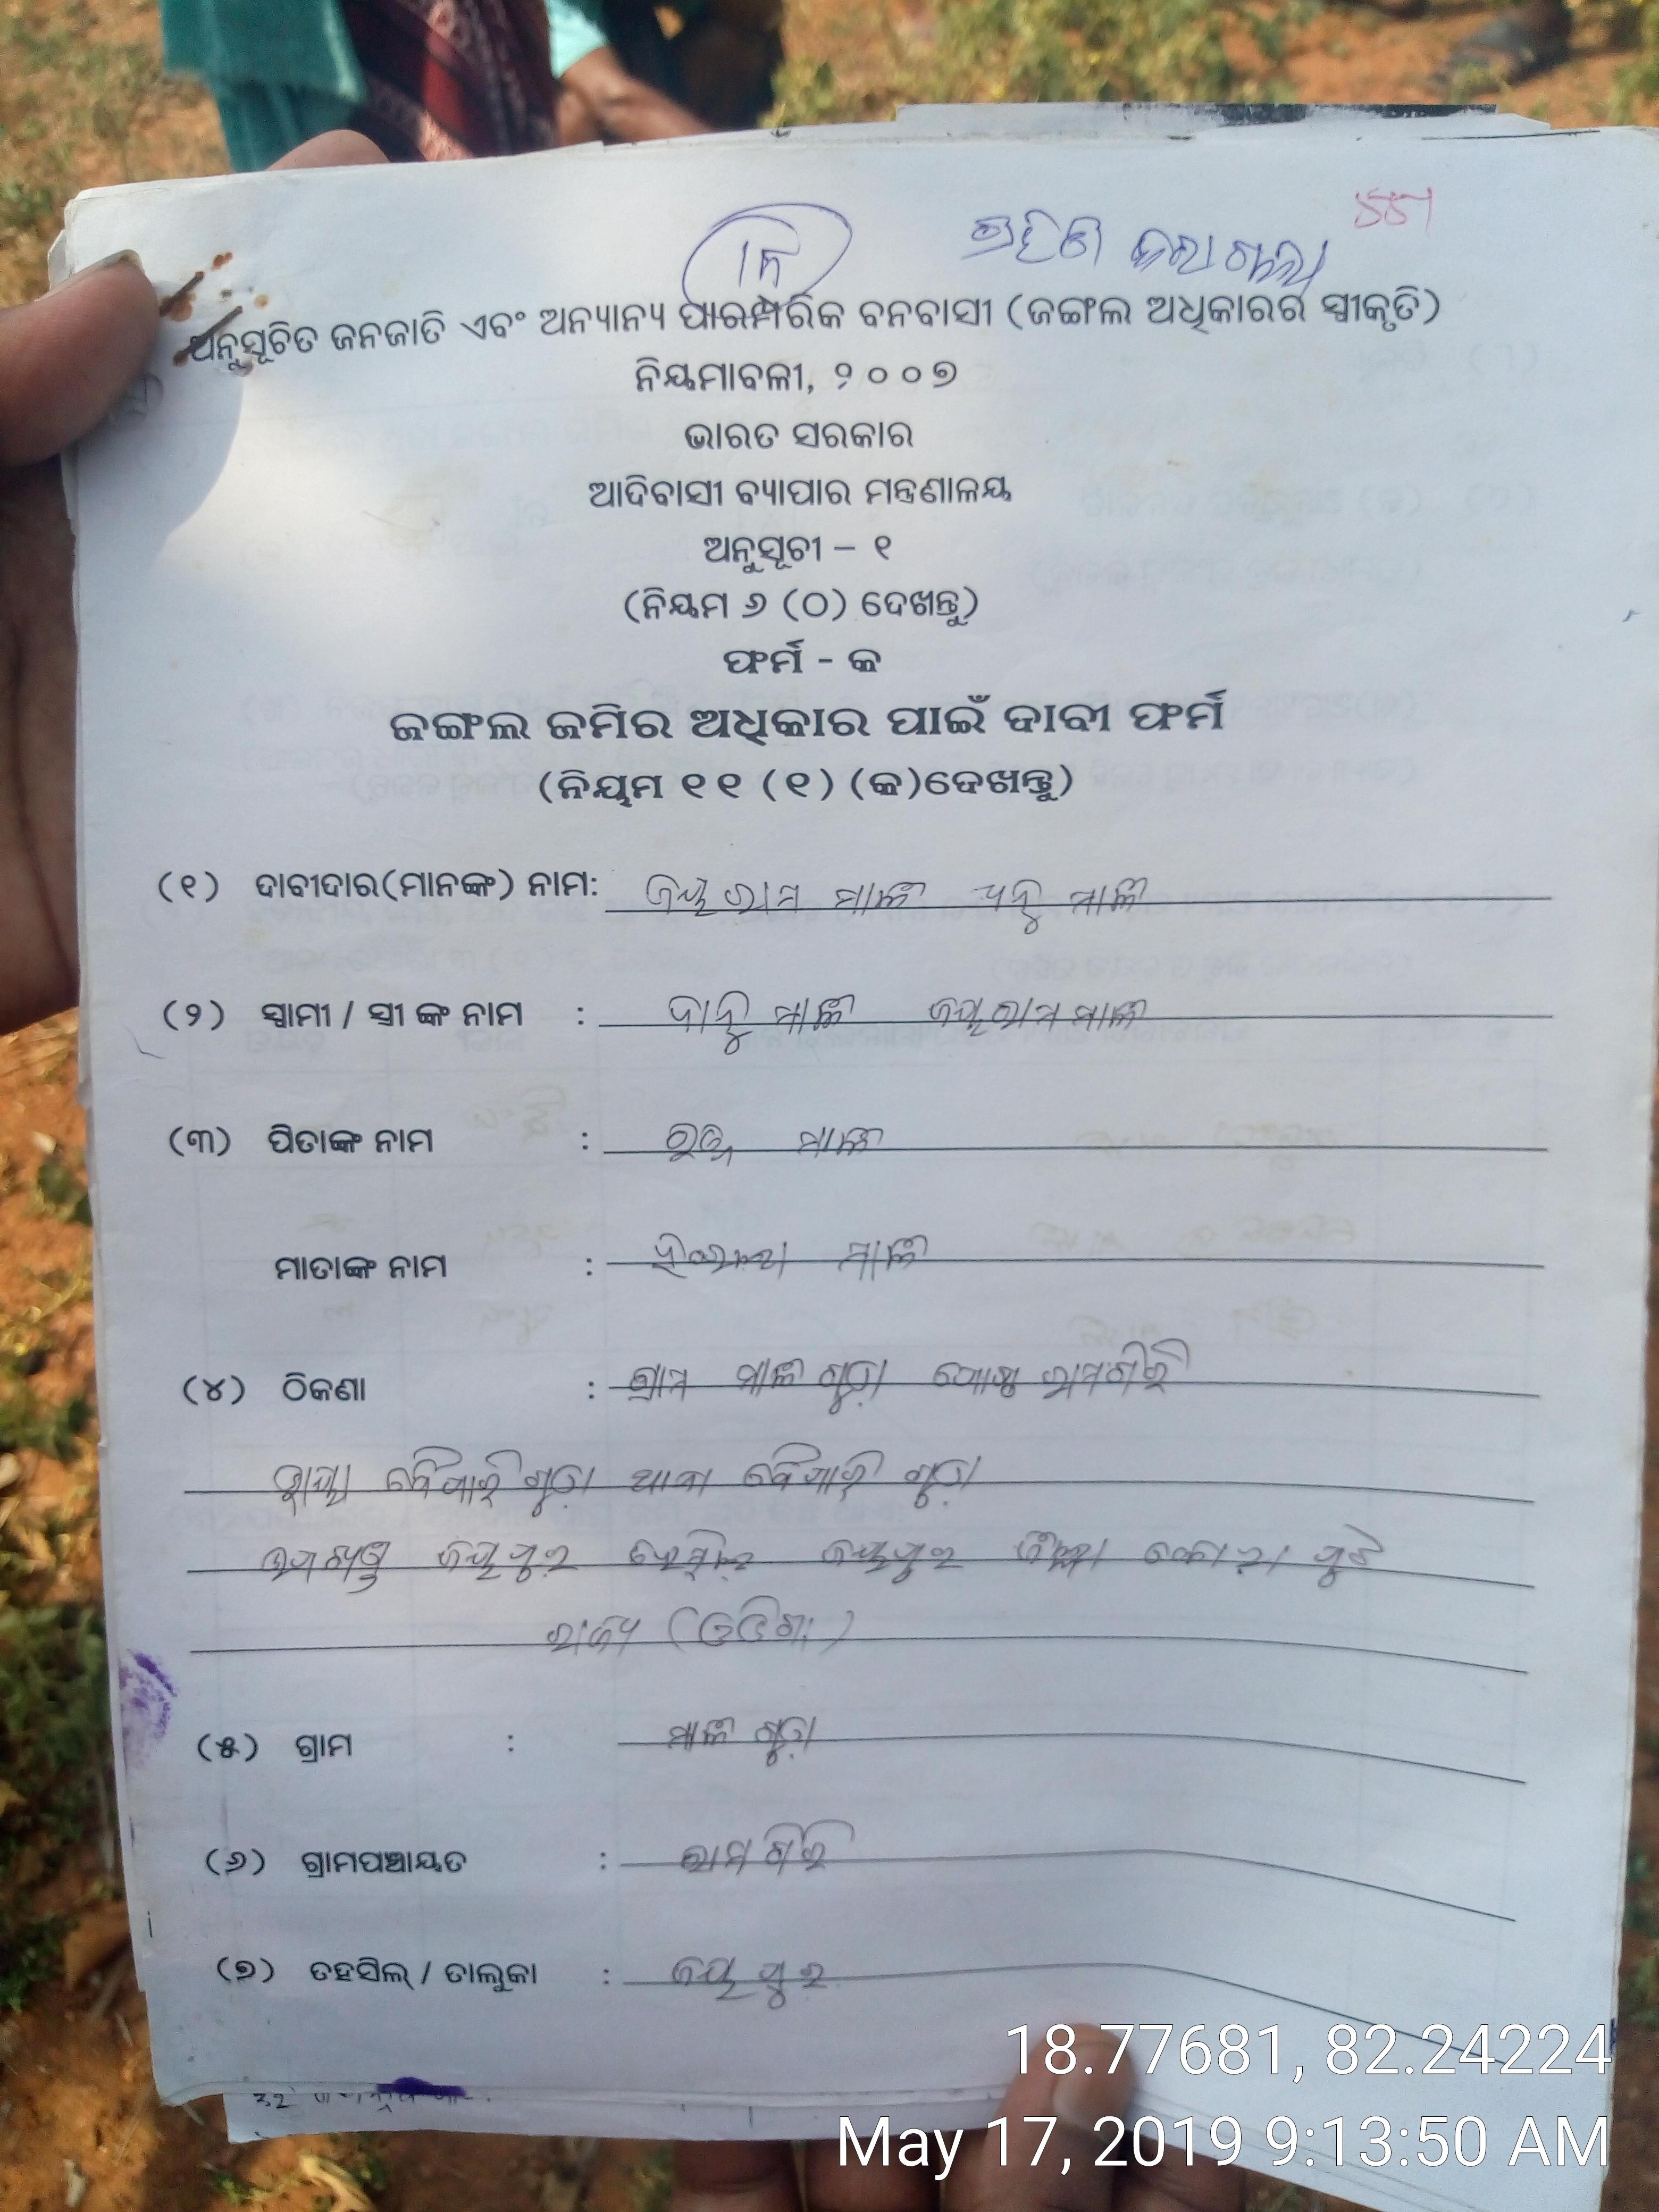 ଅନୁସୂଚିତ ଜନଜାତି ଏବଂ ଅନ୍ୟାନ୍ୟ ପାରମ୍ପରିକ ବନବାସୀ (ଜଙ୍ଗଲ ଅଧିକାରର ସ୍ୱୀକୃତି)
ନିୟମାବଳୀ, ୨୦୦୭
ଭାରତ ସରକାର
ଆଦିବାସୀ ବ୍ୟାପାର ମନ୍ତ୍ରଣାଳୟ
ଅନୁସୂଚୀ – ୧
(ନିୟମ ୬ (ଠ) ଦେଖନ୍ତୁ)
ଫର୍ମ - କ
ଜଙ୍ଗଲ ଜମିର ଅଧିକାର ପାଇଁ ଦାବୀ ଫର୍ମ
(ନିୟମ ୧୧ (୧) (କ)ଦେଖନ୍ତୁ)
(୧) ଦାବୀଦାର(ମାନଙ୍କ) ନାମ: ଜୟରାମ ମାଳୀ ମାଳୀ
(୨) ସ୍ୱାମୀ / ସ୍ତ୍ରୀ ଙ୍କ ନାମ : ମାଳୀ ଜୟରାମ ମାଳୀ
(୩) ପିତାଙ୍କ ନାମ : ମାଳୀ
ମାତାଙ୍କ ନାମ : ମାଳୀ
(୪) ଠିକଣା : ଗ୍ରାମ ମାଳିଗୁଡ଼ା ପୋଷ୍ଟ ରାମଗିରି
ଥାନା ଗୁଡ଼ା
ଜୟପୁର ଜୟପୁର ଜିଲ୍ଲା କୋରାପୁଟ
ରାଜ୍ୟ (ଓଡିଶା)
(୫) ଗ୍ରାମ : ମାଳିଗୁଡ଼ା
(୬) ଗ୍ରାମପଞ୍ଚାୟତ : ରାମଗିରି
(୭) ତହସିଲ୍ / ତାଲୁକା : ଜୟପୁର
18.77681, 82.24224
May 17, 2019 9:13:50 AM